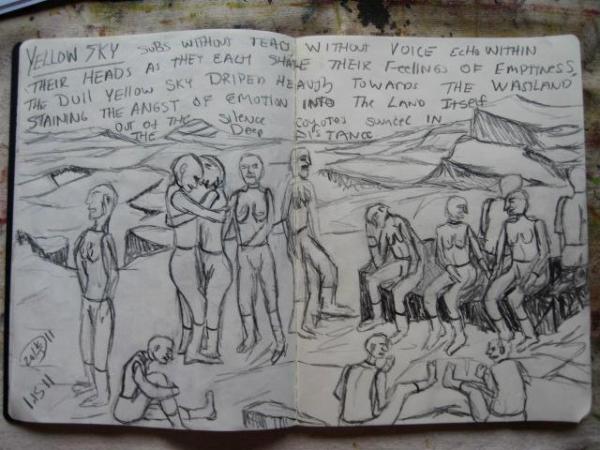 YELLOW SKY SUBS WITHOUT TEARS WITHOUT VOICE ECHO WITHIN
THEIR HEADS AS THEY EACH SHARE THEIR FEELINGS OF EMPTYNESS,
THE DULL YELLOW SKY DRIPED HEAVILY TOWARDS THE WASTLAND
STAINING THE ANGST OF EMOTION INTO THE LAND ITSELF
OUT OF THE SILENCE COYOTES IN
THE DEEP DISTANCE